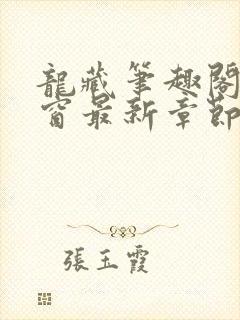 龍藏筆趣閣
窗最新章節
張玉霞